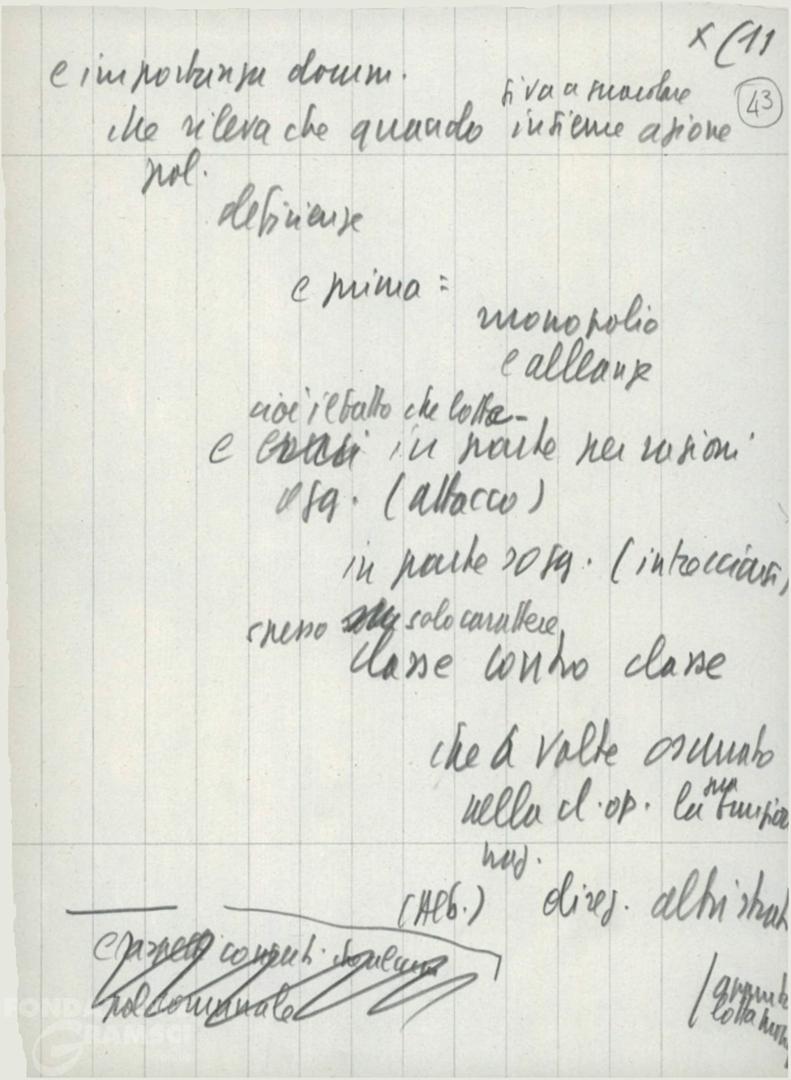 x (11
43
e importanza docum.
si va a smacolare
che rileva che quando insieme azione
pol.
deficienze
e prima =
monopolio
e alleanze
cioè il fatto che lotta
e in parte per ragioni
ogg. (attacco)
in parte sogg. (intrecciarsi
spesso solo carattere
classe contro classe
che a volte oscurato
nella cl. op. la sua funzion
naz.
(Alb.) direz. altri strati
e
pol comunale
lotta
FONDA
GRAMSCI